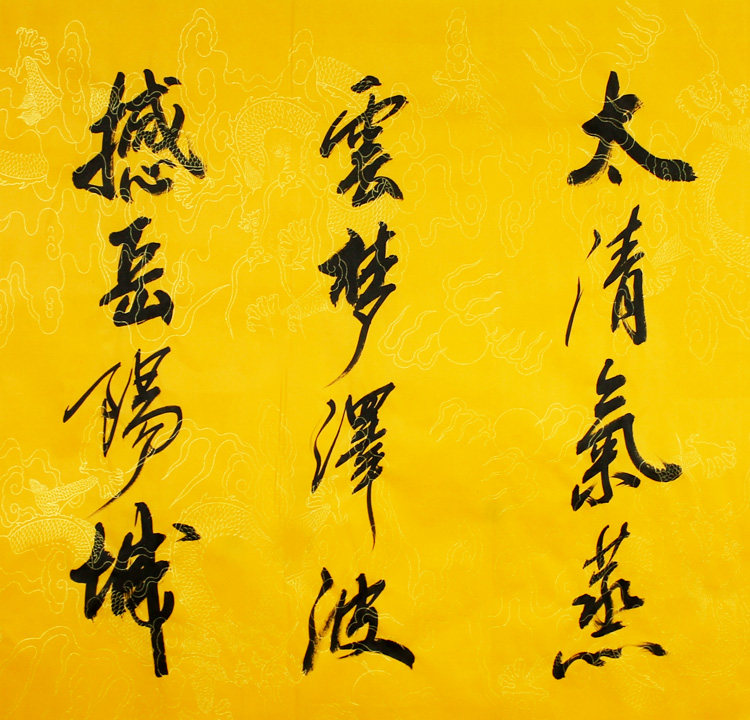 太清氣蒸
雲梦澤波
撼岳陽城